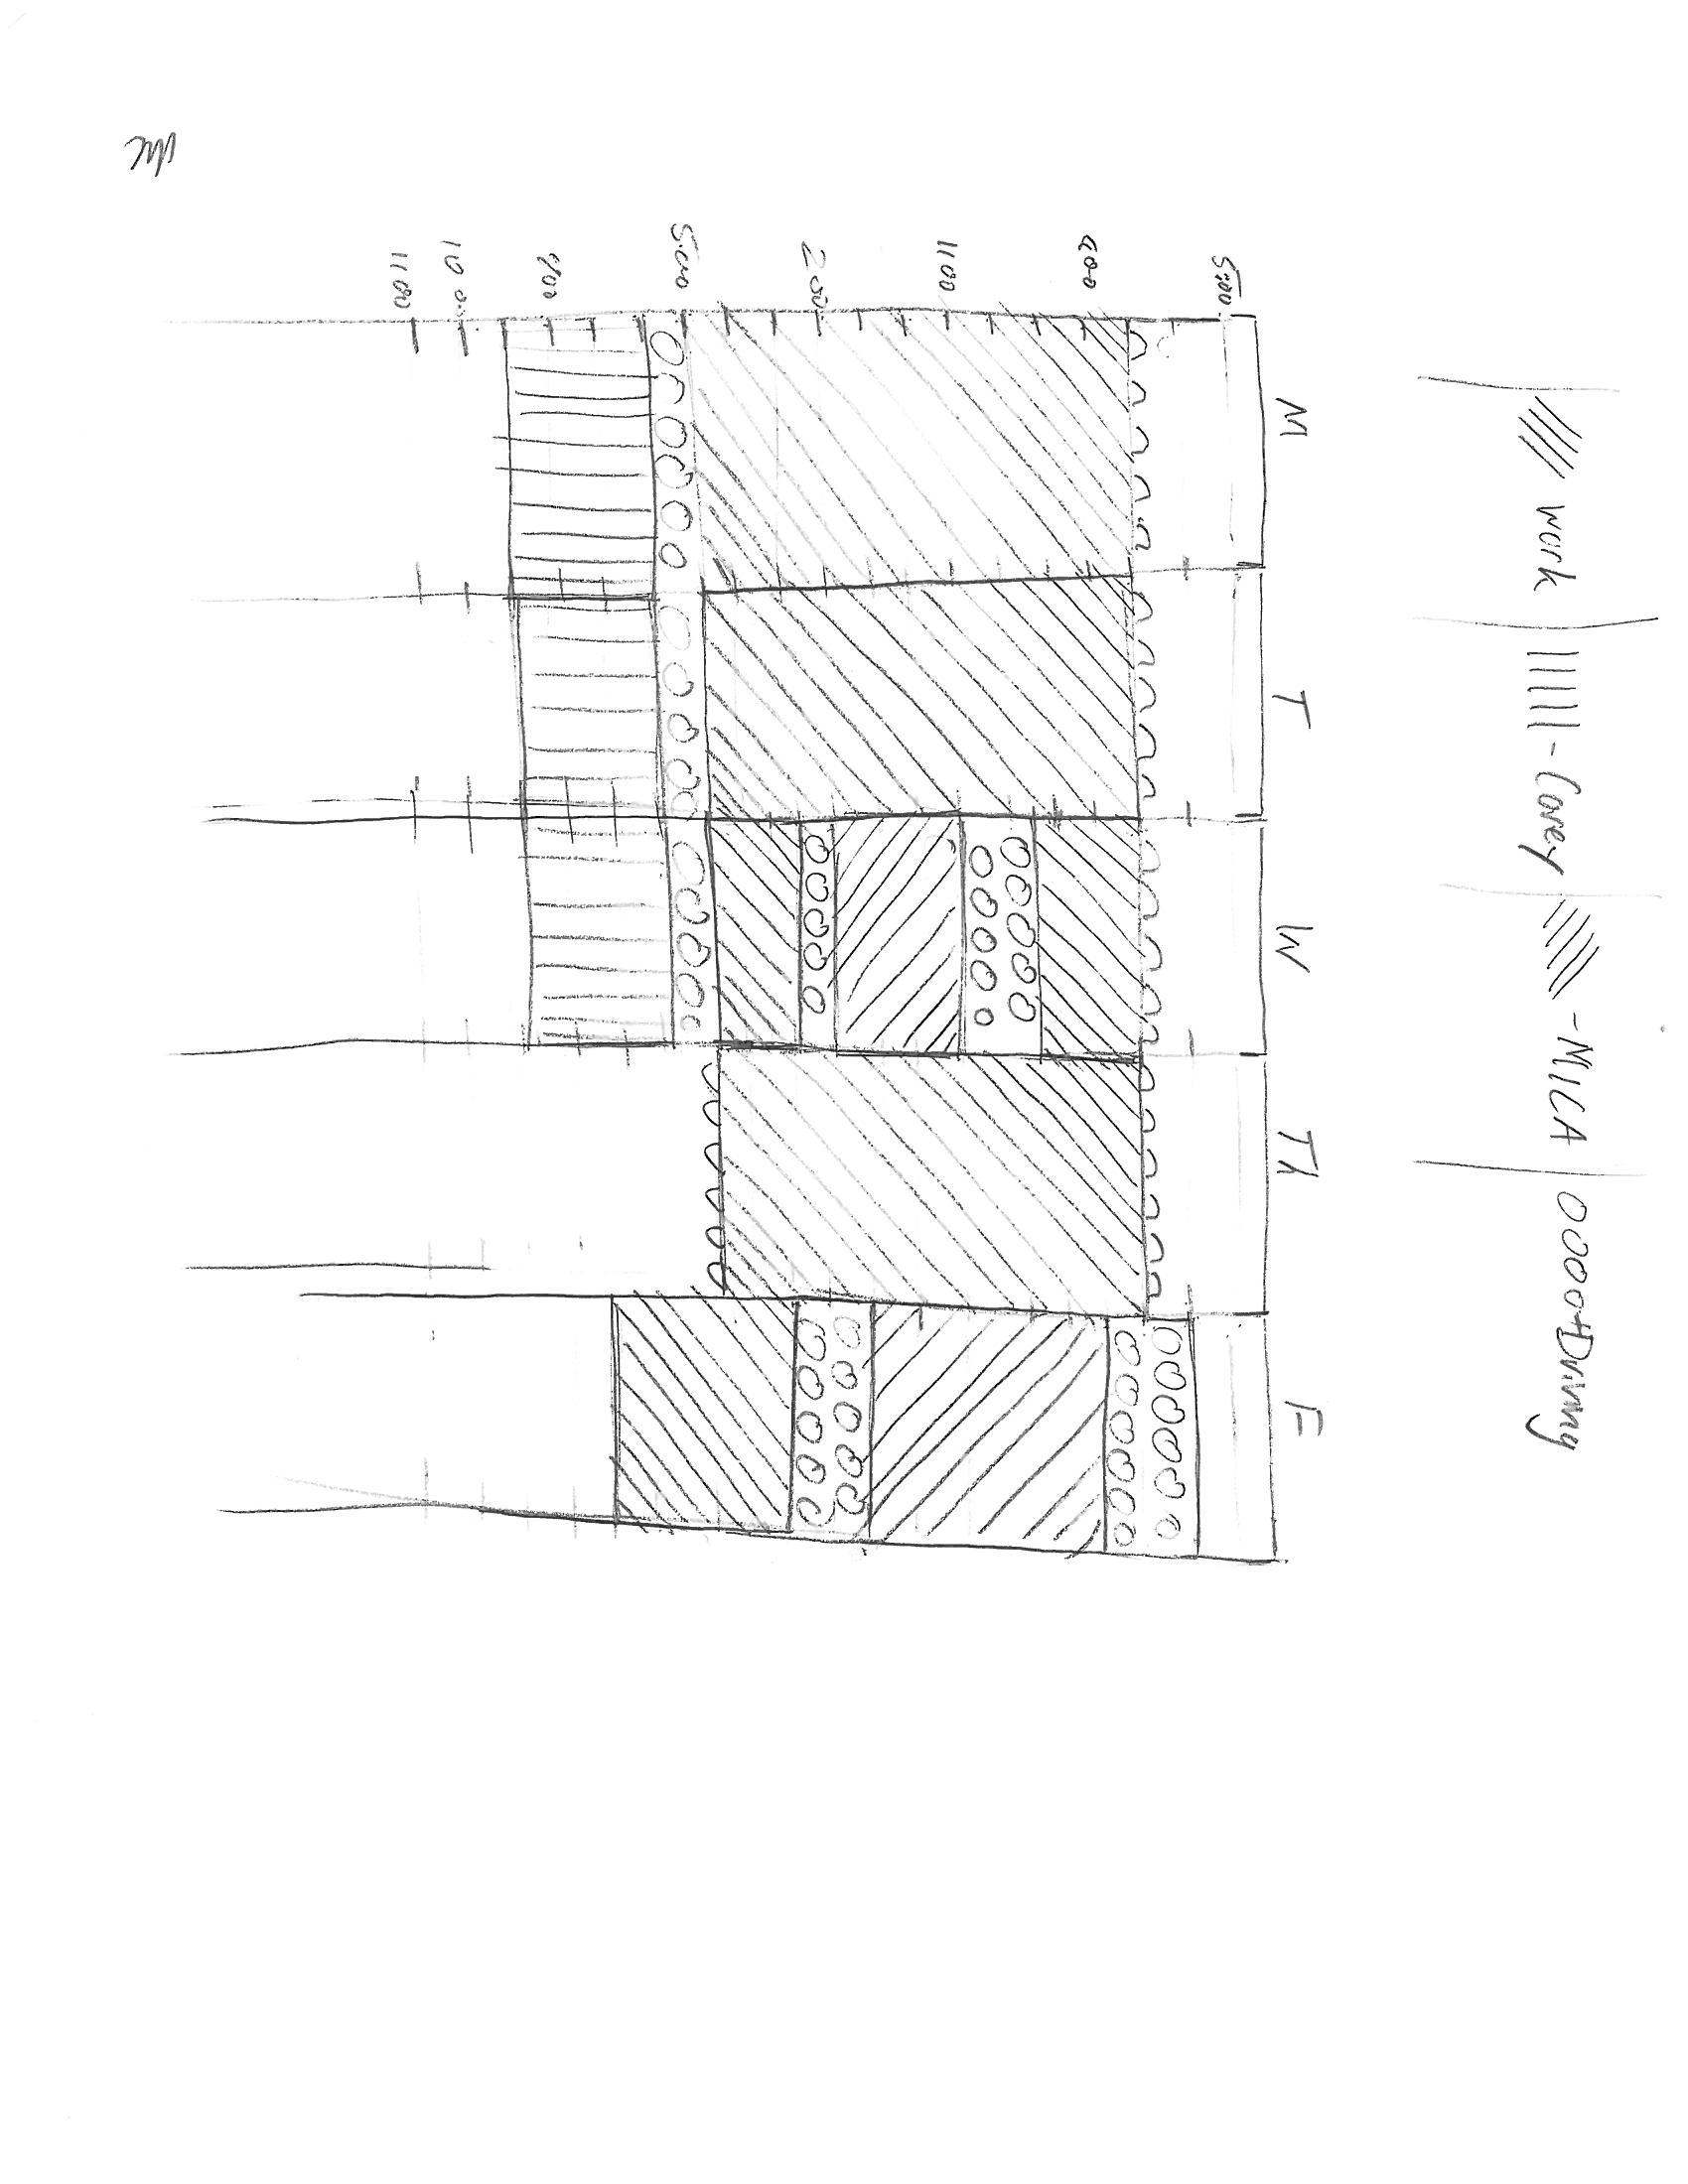 work - Corey - MICA Driving
M T W Th F
5:00
8:00
11:00
2:00
5:00
8:00
10:00
11:00